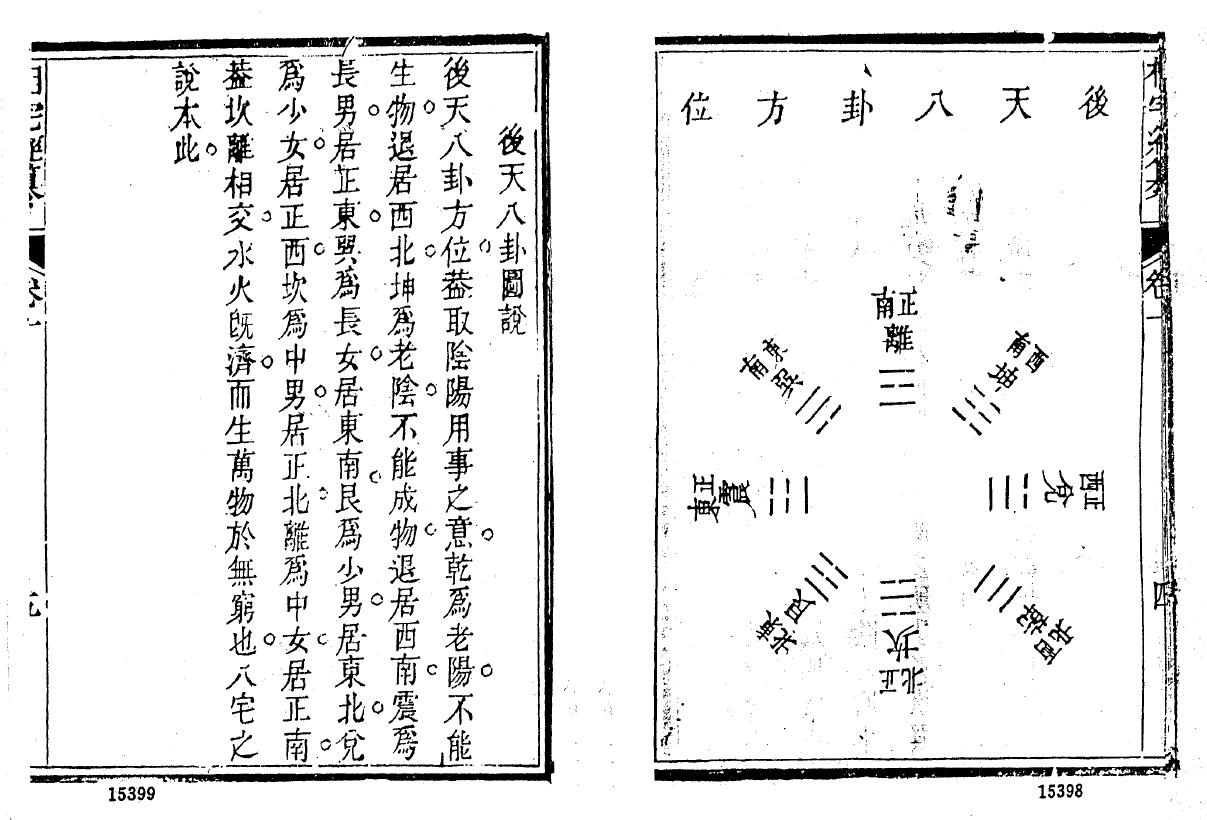 後天八卦方位
正南
離
西南
坤
正西
兌
西北
乾
正北
坎
東北
艮
正東
震
東南
巽
卷一
四
15398
後天八卦圖說
後天八卦方位葢取陰陽用事之意乾爲老陽不能
生物退居西北坤爲老陰不能成物退居西南震爲
長男居正東巽爲長女居東南艮爲少男居東北兌
爲少女居正西坎爲中男居正北離爲中女居正南
葢坎離相交水火旣濟而生萬物於無窮也八宅之
說本此
15399